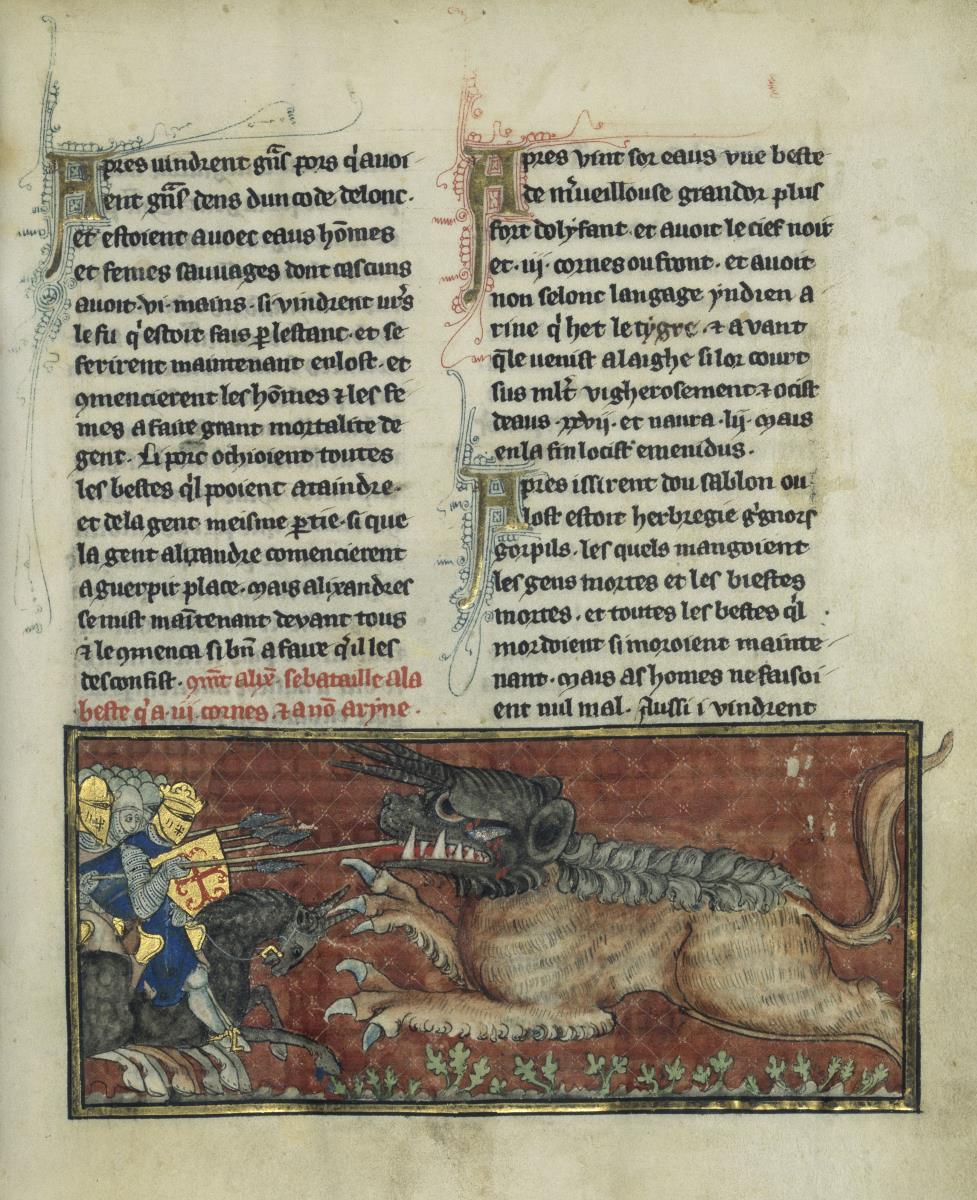 Apres uindrent gñs pors q̓ auoi
ent gñs dens dun code de lonc.
et estoient auoec eaus hōmes
et femes sauuages dont cascuns
auoit .vi. mains. si vindrent urs̓
le fu q̓ estoit fais ꝑ lestanc. et se
ferirent maintenant en lost. et
ꝯmencierent les hōmes ⁊ les fe
mes a faire grant mortalite de
gent. Li porc ochioient toutes
les bestes q̓l pooient ataindre.
et de la gent meisme ꝑtie. si que
la gent alixandre comencierent
a guerpir place. mais alixandres
se mist mait̄enant deuant tous
⁊ le ꝯmenca si bn̄ a faire q̓ il les
desconfist. ꝯmt̄ alix̄ se bataille a la
beste q̓ a .iii. cornes. ⁊ a nō aryne.
Apres vint sor eaus vne beste
de mr̓ueillouse grandor plus
fort dolyfant. et auoit le cief noir
et .iij. cornes ou front. et auoit
non selonc langage yndien a
rine q̓ het le tygre. ⁊ auant
q̄le uenist a laighe si lor court
sus ml̄t vigherosement ⁊ ocist
deaus .xxvij. et naura .lij. mais
en la fin locist emenidus.
Apres issirent dou sablon ou
lost estoit herbregie gͥgnors
gorpils. les quels mangoient
les gens mortes et les biestes
mortes. et toutes les bestes q̓l
mordoient si moroient mainte
nant. mais as homes ne faisoi
ent nul mal. Aussi i vindrent